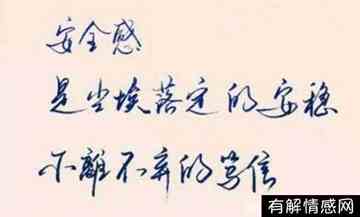 安全感
是尘埃落定的安稳
不離不弃的笃信
有解情感网